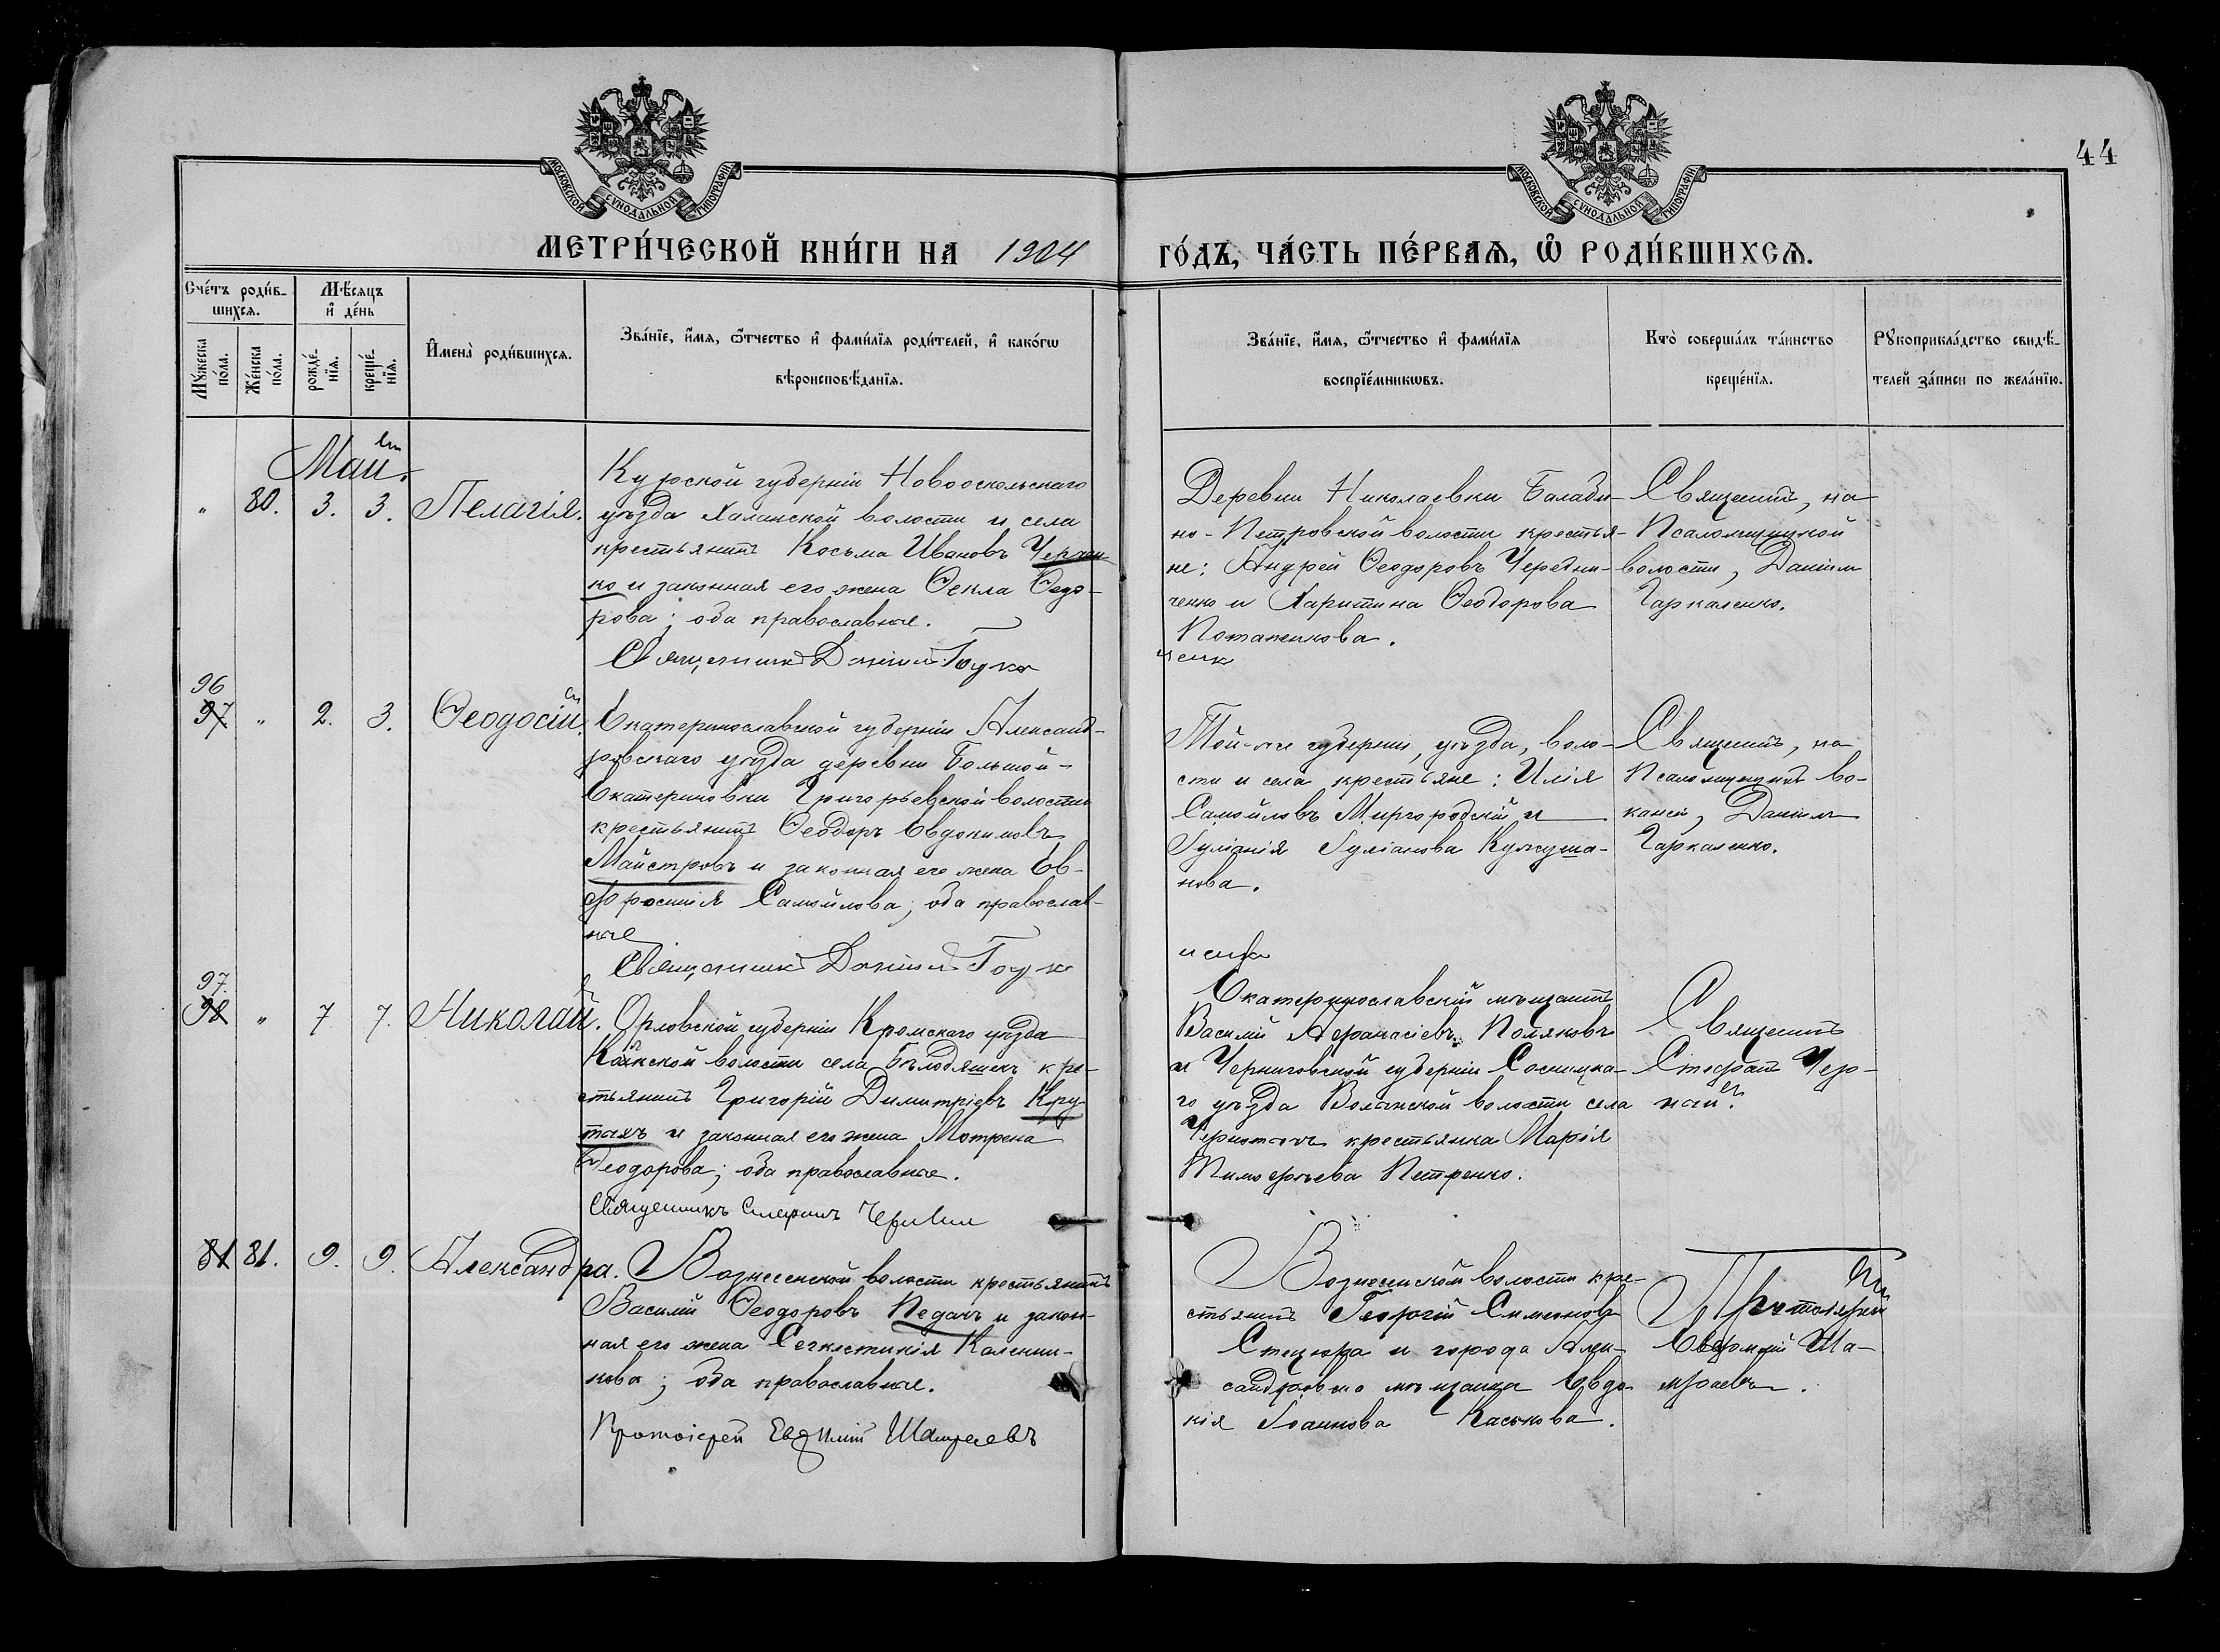 44
МОСКОВСКОЙ СѴНОДАЛЬНОЙ ТИПОГРАФІИ
МОСКОВСКОЙ СѴНОДАЛЬНОЙ ТИПОГРАФІИ
МЕТРИ́ЧЕСКОЙ КНИ́ГИ НА 1904
ГО́ДЪ, ЧА́СТЬ ПЕ́РВАѦ, Ѡ҆ РОДИ́ВШИХСѦ.
Сче́тъ роди́в-
шихсѧ.
Мѣ́сяцъ
и҆ де́нь
Мꙋ́жеска
по́ла.
Же́нска
по́ла.
рожде́-
нїѧ.
креще́-
нїѧ.
И҆мена̀ роди́вшихсѧ.
Зва́нїе, и҆́мѧ, ѻ҆́тчество и҆ фами́лїѧ роди́телей, и҆ како́гѡ
вѣроисповѣ́данїѧ.
Зва́нїе, и҆́мѧ, ѻ҆́тчество и҆ фами́лїѧ
воспрїе́мникѡвъ.
Кто̀ соверша́лъ та́инство
креще́нїѧ.
Рꙋкоприкла́дство свидѣ́-
телей за́писи по жела́нїю.
Май.
" 80. 3. 3. Пелагія.
Курской губерніи Новооскольскаго
уѣзда Халанской волости и села
крестьянинъ Косьма Ивановъ
и законная его жена Ѳекла Ѳедо-
рова; оба православные.
Священникъ Даніилъ
Деревни Николаевки Балаби-
но-Петровской волости крестья-
не: Андрей Ѳеодоровъ Чередни-
ченко и Харитина Ѳеодорова
Потапенкова.
Священникъ, на
Псаломщицкой
Даніилъ
Гаркаленко.
96
97. " 2. 3. Ѳеодосій.
Екатеринославской губерніи Александ-
ровскаго уѣзда деревни Большой-
Екатериновки Григорьевской волости
крестьянинъ Ѳеодоръ Евдокимовъ
Майстровъ и законная его жена Ев-
фросинія Самойлова; оба православ-
ные
Священникъ Даніилъ
Той-же губерніи, уѣзда, воло-
сти и села крестьяне: Илія
Самойловъ Миргородскій и
Іуліанія Іуліанова
нова.
Священникъ, на
Псаломщицкой ва-
кансіи, Даніилъ
Гаркаленко.
97.
98 " 7 7. Николай.
Орловской губерніи Кромскаго уѣзда
волости села кре-
стьянинъ Григорій Димитріевъ Кру-
тахъ и законная его жена Мотрена
Ѳеодорова; оба православные.
Священникъ Стефанъ
Екатеринославскій мѣщанинъ
Василій Аѳанасіевъ Поляковъ
и Черниговской губерніи Сосницка-
го уѣзда Волынской волости села
крестьянка Марія
Тимоѳеева Петренко.
Священникъ
Стефанъ Чер-
81 81. 9. 9. Александра.
Вознесенской волости крестьянинъ
Василій Ѳеодоровъ Педачъ и закон-
ная его жена Калени-
кова; оба православные.
Протоіерей Евѳимій Шамраевъ
Вознесенской волости кре-
стьянинъ Георгій Симеоновъ
Стецюра и города Алек-
сандровска мѣщанка Евдо-
кія Іоаннова Каськова.
Протоіерей
Евѳимій Ша-
мраевъ.